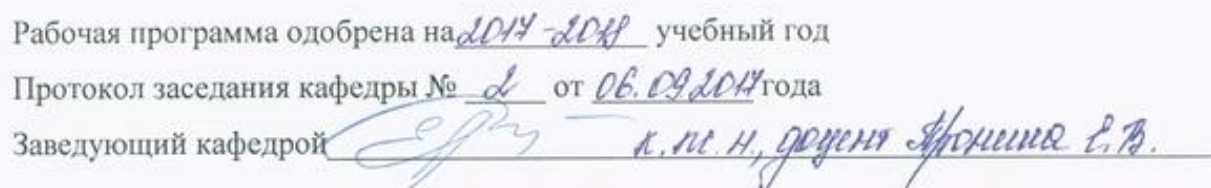 Рабочая программа одобрена на 2017-2018 учебный год
Протокол заседания кафедры № 2 от 06.09.2017 года
Заведующий кафедрой к.т.н., доцент Е.В.